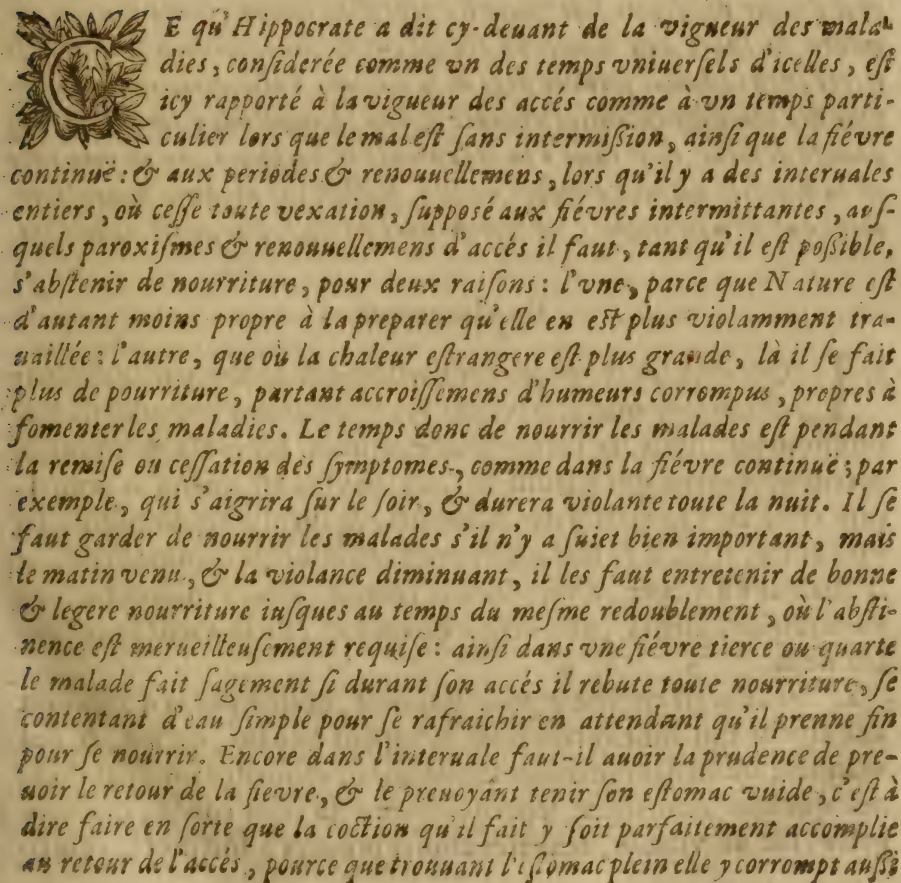 CE qu'Hippocrate a dit cy-deuant de la vigueur des mala-
dies, conſiderée comme vn des temps vniuerſels d'icelles, eſt
icy rapporté à la vigueur des accés comme à vn temps parti-
culier lors que le mal eſt ſans intermiſſion, ainſi que la fiévre
continuë: & aux periodes & renouuellemens, lors qu'il y a des interuales
entiers, où ceſſe toute vexation, ſuppoſé aux fiévres intermittantes, auſ-
quels paroxiſmes & renouuellemens d'accés il faut, tant qu'il eſt poſſible,
s'abſtenir de nourriture, pour deux raiſons: l'vne, parce que Nature eſt
d'autant moins propre à la preparer qu'elle en eſt plus violamment tra-
uaillée: l'autre, que où la chaleur eſtrangere eſt plus grande, là il ſe fait
plus de pourriture, partant accroiſſemens d'humeurs corrompus, propres à
fomenter les maladies. Le temps donc de nourrir les malades eſt pendant
la remiſe ou ceſſation des ſymptomes, comme dans la fiévre continuë; par
exemple, qui s'aigrira ſur le ſoir, & durera violante toute la nuit. Il ſe
faut garder de nourrir les malades s'il n'y a ſuiet bien important, mais
le matin venu, & la violance diminuant, il les faut entretenir de bonne
& legere nourriture iuſques au temps du meſme redoublement, où l'abſti-
nence eſt merueilleuſement requiſe: ainſi dans vne fiévre tierce ou quarte
le malade fait ſagement ſi durant ſon accés il rebute toute nourriture, ſe
contentant d'eau ſimple pour ſe rafraichir en attendant qu'il prenne fin
pour ſe nourrir. Encore dans l'interuale faut-il auoir la prudence de pre-
uoir le retour de la fievre, & le preuoyant tenir ſon eſtomac vuide, c'eſt à
dire faire en ſorte que la coction qu'il fait y ſoit parfaitement accomplie
au retour de l'accés, pource que trouuant l'eſtomac plein elle y corrompt auſſi